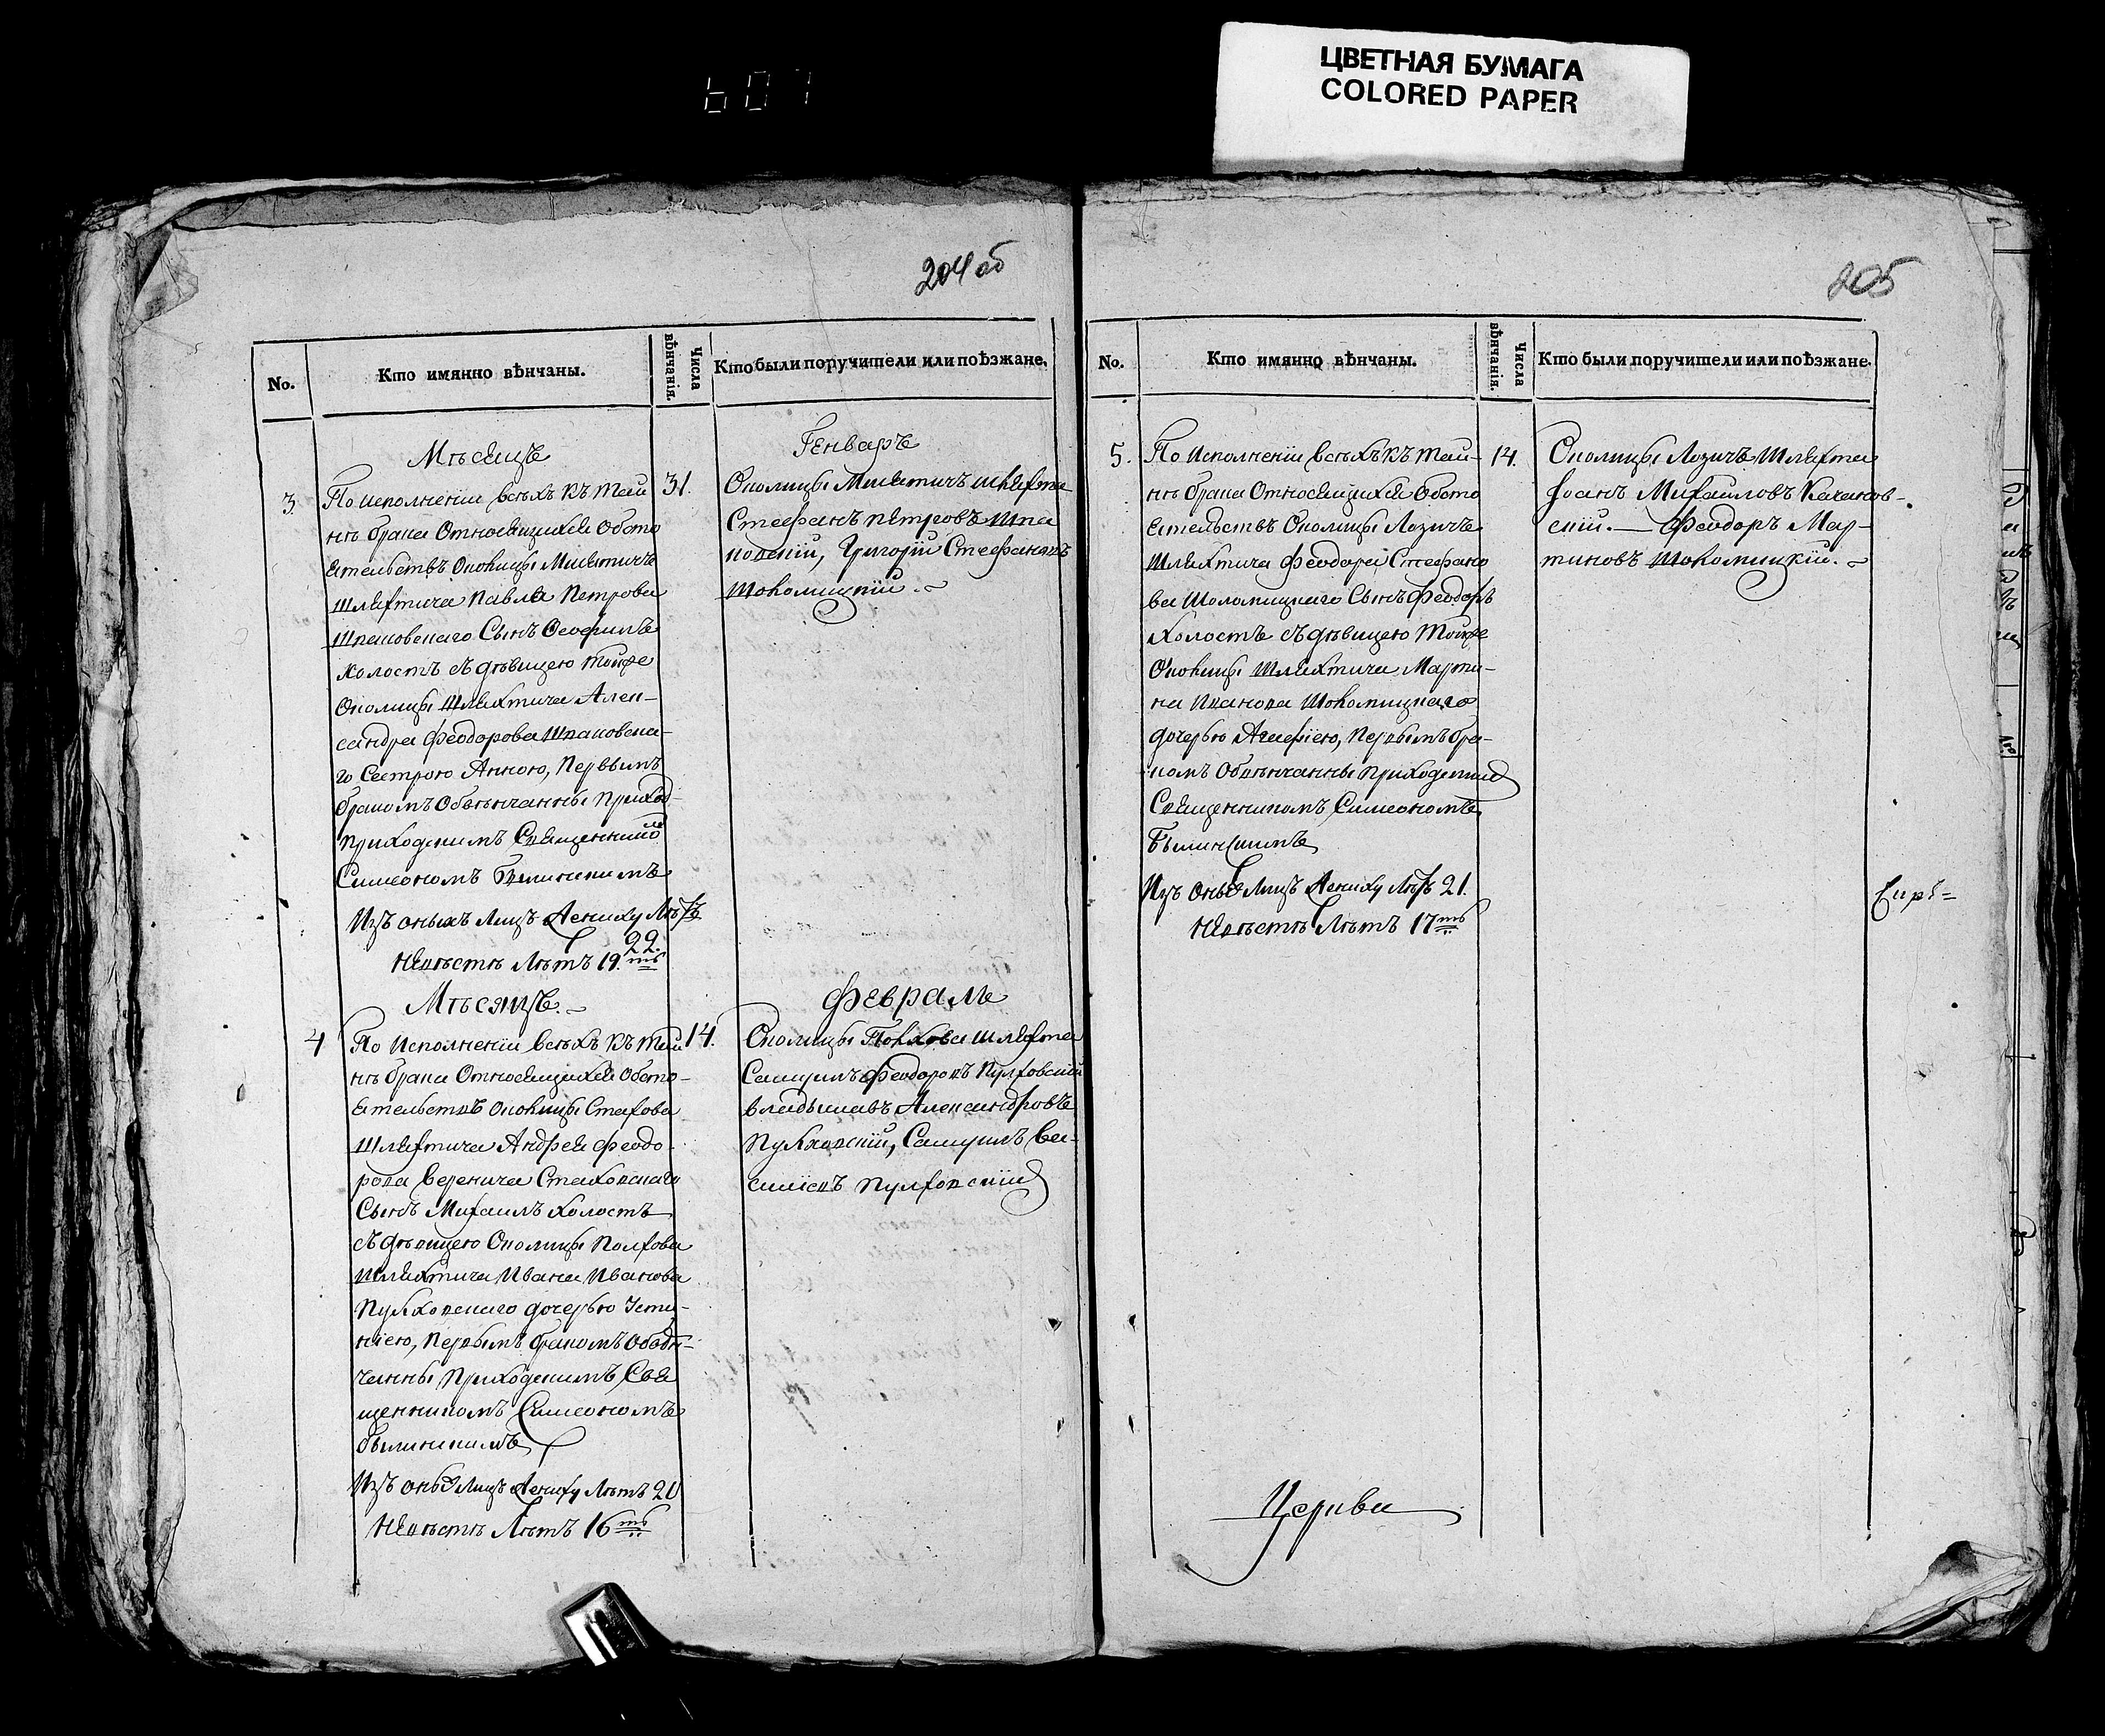 ЦВЕТНАЯ БУМАГА
COLORED PAPER
607
204 об
No.
Кто имянно вѣнчаны.
Числа вѣнчанія.
Кто были поручители или поѣзжане.
Мѣсяцъ
Генварь
3.
По исполненіи всѣхъ къ таи
нѣ брака Относящихся Обсто
ятельствъ Околицы Милятичъ
Шляхтича Павла Петрова
Шпаковскаго Сынъ Осафимъ
холостъ съ дѣвицею тойже
Околицы Шляхтича Алек-
сандра Феодорова Шпаковска-
го Сестрою Анною, Первымъ
бракомъ Обвѣнчанны приход-
приходскимъ Священником
Симеономъ Былинскимъ
Изъ оныхъ Лицъ Жениху Лѣтъ
22.
Невѣстѣ Лѣтъ 19.ть
31.
Околицы Милятичъ шляхта
Стефанъ Петровъ Шпа
ковскій, Григорій Стефановъ
Шоломицкій.
Мѣсяцъ.
Февраль
4
По Исполненіи всѣхъ къ таи
нѣ брака Относящихся Обсто-
ятельствъ околицы Стахова
Шляхтича Андрея Феодо-
рова Веренича Стаховскаго
Сынъ Михаилъ холостъ
съ дѣвицею Околицы Полхова
Шляхтича Ивана Иванова
Пулховскаго дочерью Усти-
ніею, Первымъ бракомъ Обвѣн-
чанны Приходскимъ Свя
щенникомъ Симеономъ
Былинскимъ
Изъ оныхъ Лицъ Жениху Лѣтъ 20
Невѣстѣ Лѣтъ 16ть
14.
Околицы Полхова шляхта
Самуилъ Феодоровъ Пулховскій
Владыславъ Александровъ
Пулховскій, Самуилъ Ва-
силіевъ Пулховскій
205
No.
Кто имянно вѣнчаны.
Числа вѣнчанія.
Кто были поручители или поѣзжане.
5.
По Исполненіи всѣхъ къ таи-
нѣ брака Относящихся Обсто
ятельствъ Околицы Лозичъ
Шляхтича Феодора Стефано
ва Шоломицкаго Сынъ Феодоръ
холостъ съ дѣвицею Тойже
Околицы Шляхтича Марти-
на Иванова Шоломицкаго
дочерью Агафіею, Первымъ бра-
комъ Обвѣнчанны Приходским
Священникомъ Симеономъ
Былинскимъ
Изъ оныхъ Лицъ Жениху Лѣтъ 21.
Невѣстѣ Лѣтъ 17ть
14.
Околицы Лозичъ Шляхта
Іоанъ Михаиловъ Качанов-
скій. — Феодоръ Мар-
тиновъ Шоломицкій.
Церкви